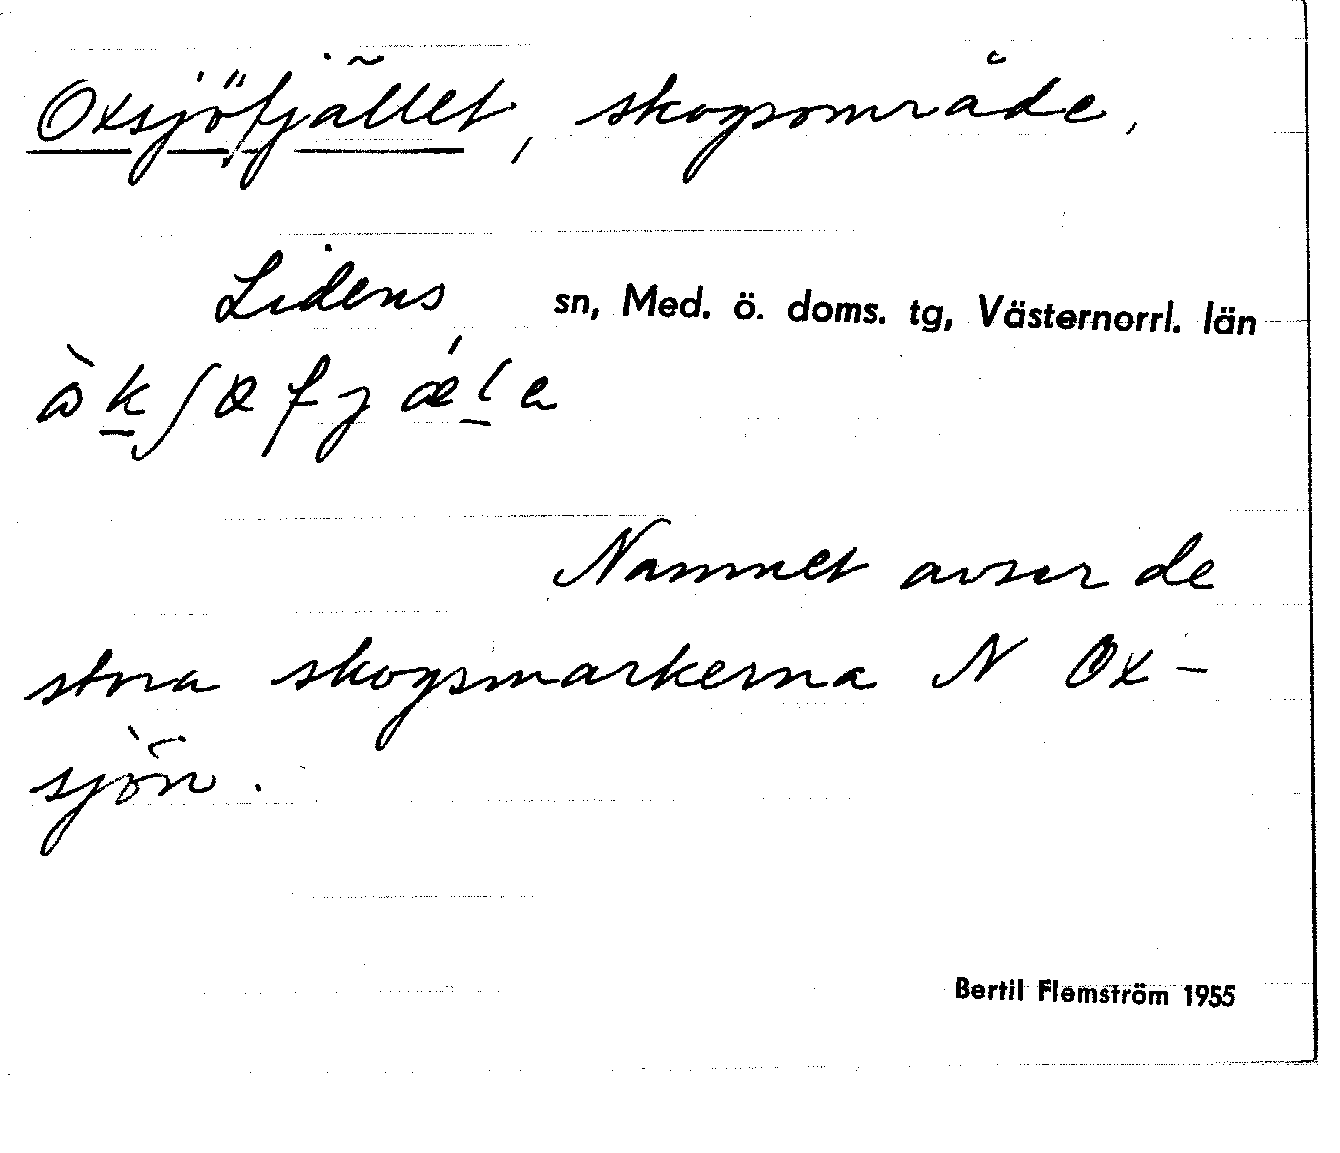 Oxsjöfjället, skogsområde,
Lidens sn, Med. ö. doms. tg, Västernorrl. län
Namnet avser de
stora skogsmarkerna N Ox-
sjön.
Bertil Flemström 1955